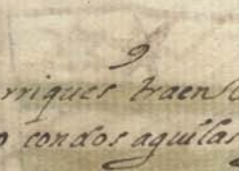 9
rriques traen
condos aguilas